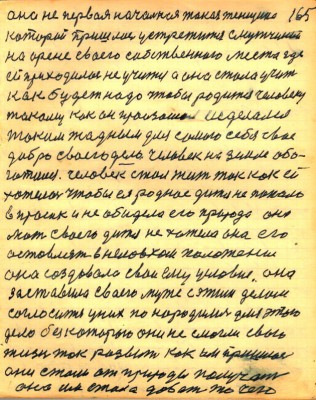 она не первая началися такая женщина 165
которой пришлось устретится с мужчиной
на арене своего собственного места где
ей приходилось не учить а она стала учит
как будет надо чтобы родится человеку
такому как он произошол и сделался
таким жадным для самого себя свое
добро своего дела человек на земле обо-
гатился. человек стал жит так как ей
хотелос чтобы ея родное дитя не попало
в просак и не обидела его природа она
мат своего дитя не хотела она его
оставлят в неловком положении
она создовала свои ему условия, она
заставила своего мужа с этим делом
согласится у них по народился для этого
дело без которого они не смогли свою
жизн так развит как им пришлос
они стали от природы получат
она им стала доват по чего